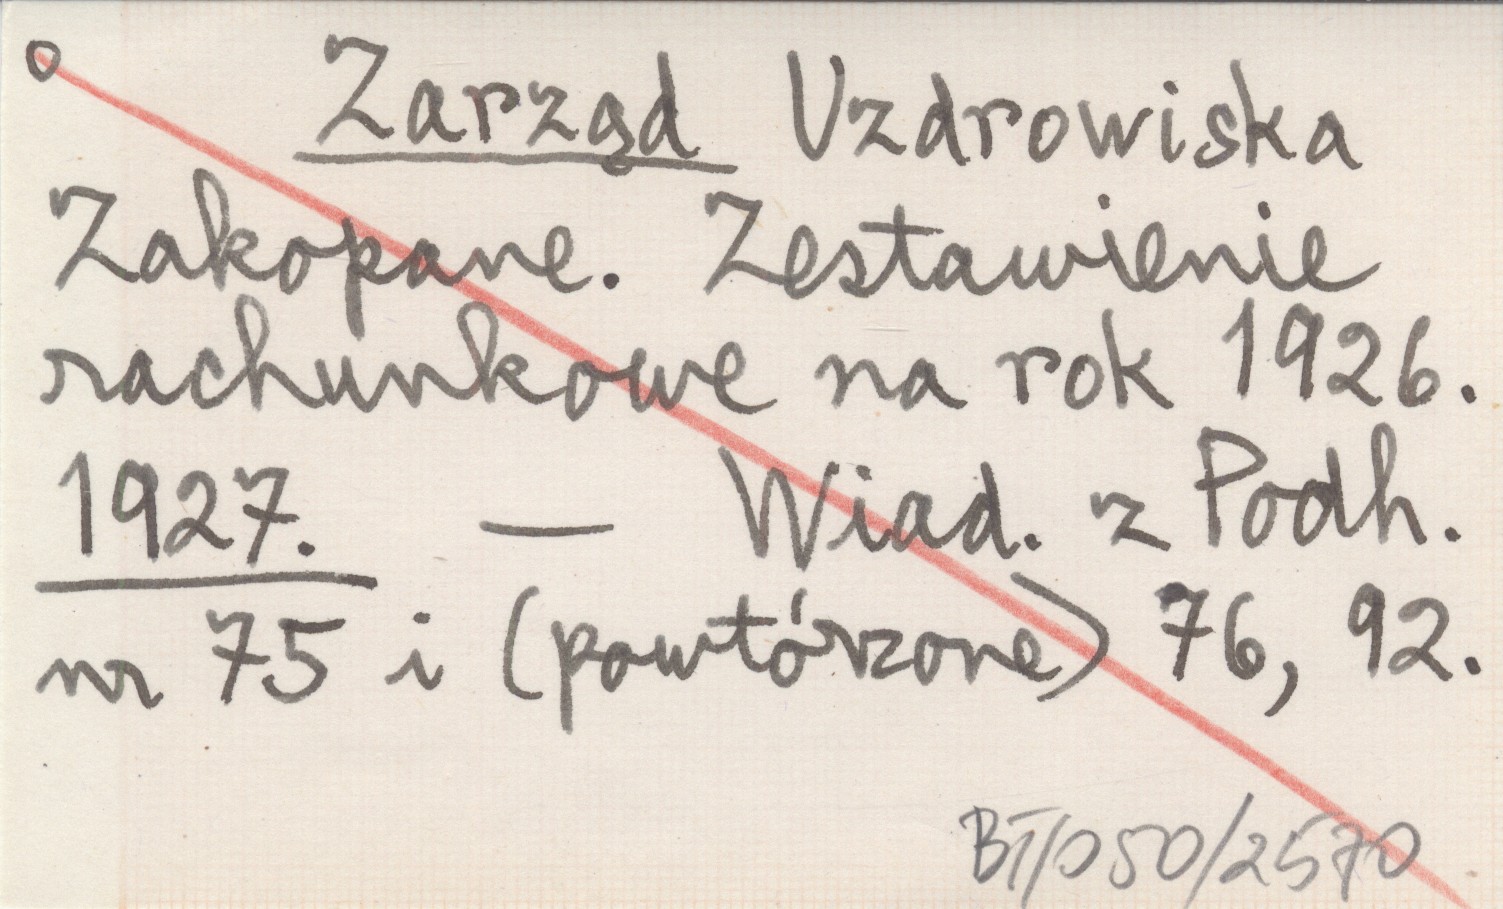 o Zarząd Uzdrowiska
Zakopane. Zestawienie
rachunkowe na rok 1926.
1927. — Wiad. z Podh.
nr 75 i (powtórzone) 76, 92.
BT/050/2570